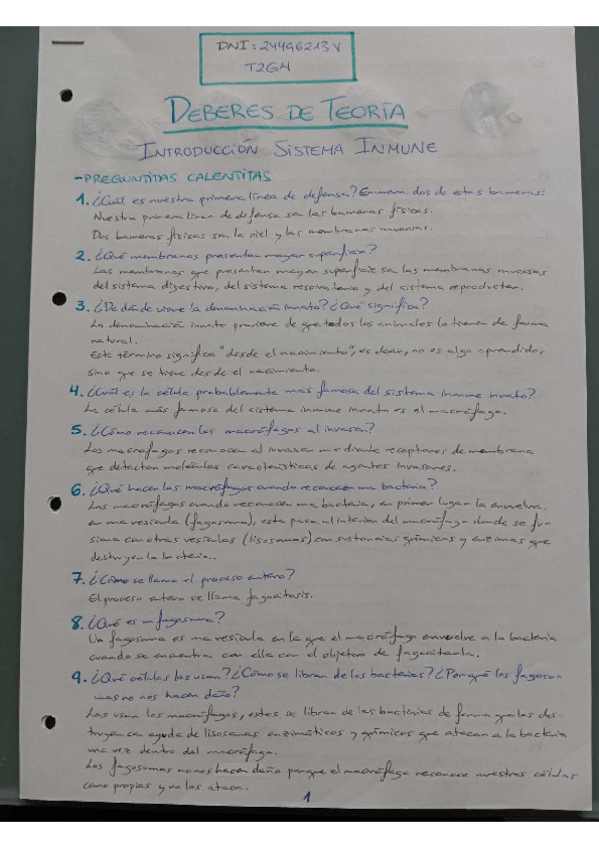 DNI: 24496213V
T2GM
DEBERES DE TEORÍA
INTRODUCCIÓN SISTEMA INMUNE
-PREGUNTITAS CALENTITAS
1. ¿Cuál es nuestra primera línea de defensa? Enumera dos de estas barreras:
Nuestra primera línea de defensa son las barreras físicas.
Dos barreras físicas son la piel y las membranas mucosas.
2. ¿Qué membranas presentan mayor superficie?
Las membranas que presentan mayor superficie son las membranas mucosas
del sistema digestivo, del sistema respiratorio y del sistema reproductor.
3. ¿De dónde viene la denominación innato? ¿Qué significa?
La denominación innato proviene de que todos los animales lo tienen de forma
natural.
Este término significa "desde el nacimiento", es decir, no es algo aprendido,
sino que se tiene desde el nacimiento.
4. ¿Cuál es la célula probablemente más famosa del sistema inmune innato?
La célula más famosa del sistema inmune innato es el macrófago.
5. ¿Cómo reconocen los macrófagos al invasor?
Los macrófagos reconocen al invasor mediante receptores de membrana
que detectan moléculas características de agentes invasores.
6. ¿Qué hacen los macrófagos cuando reconocen una bacteria?
Los macrófagos cuando reconocen una bacteria, en primer lugar la envuelve
en una vesícula (fagosoma), esta pasa al interior del macrófago donde se fu-
siona con otras vesículas (lisosomas) con sustancias químicas y enzimas que
destruyen la bacteria.
7. ¿Cómo se llama el proceso entero?
El proceso entero se llama fagocitosis.
8. ¿Qué es un fagosoma?
Un fagosoma es una vesícula en la que el macrófago envuelve a la bacteria
cuando se encuentra con ella con el objetivo de fagocitarla.
9. ¿Qué células los usan? ¿Cómo se libran de las bacterias? ¿Por qué los fagoso-
mas no nos hacen daño?
Las usan los macrófagos, estos se libran de las bacterias de forma que las des-
truyen con ayuda de lisosomas enzimáticos y químicos que atacan a la bacteria
una vez dentro del macrófago.
Los fagosomas no nos hacen daño porque el macrófago reconoce nuestras células
como propias y no las atacan.
1